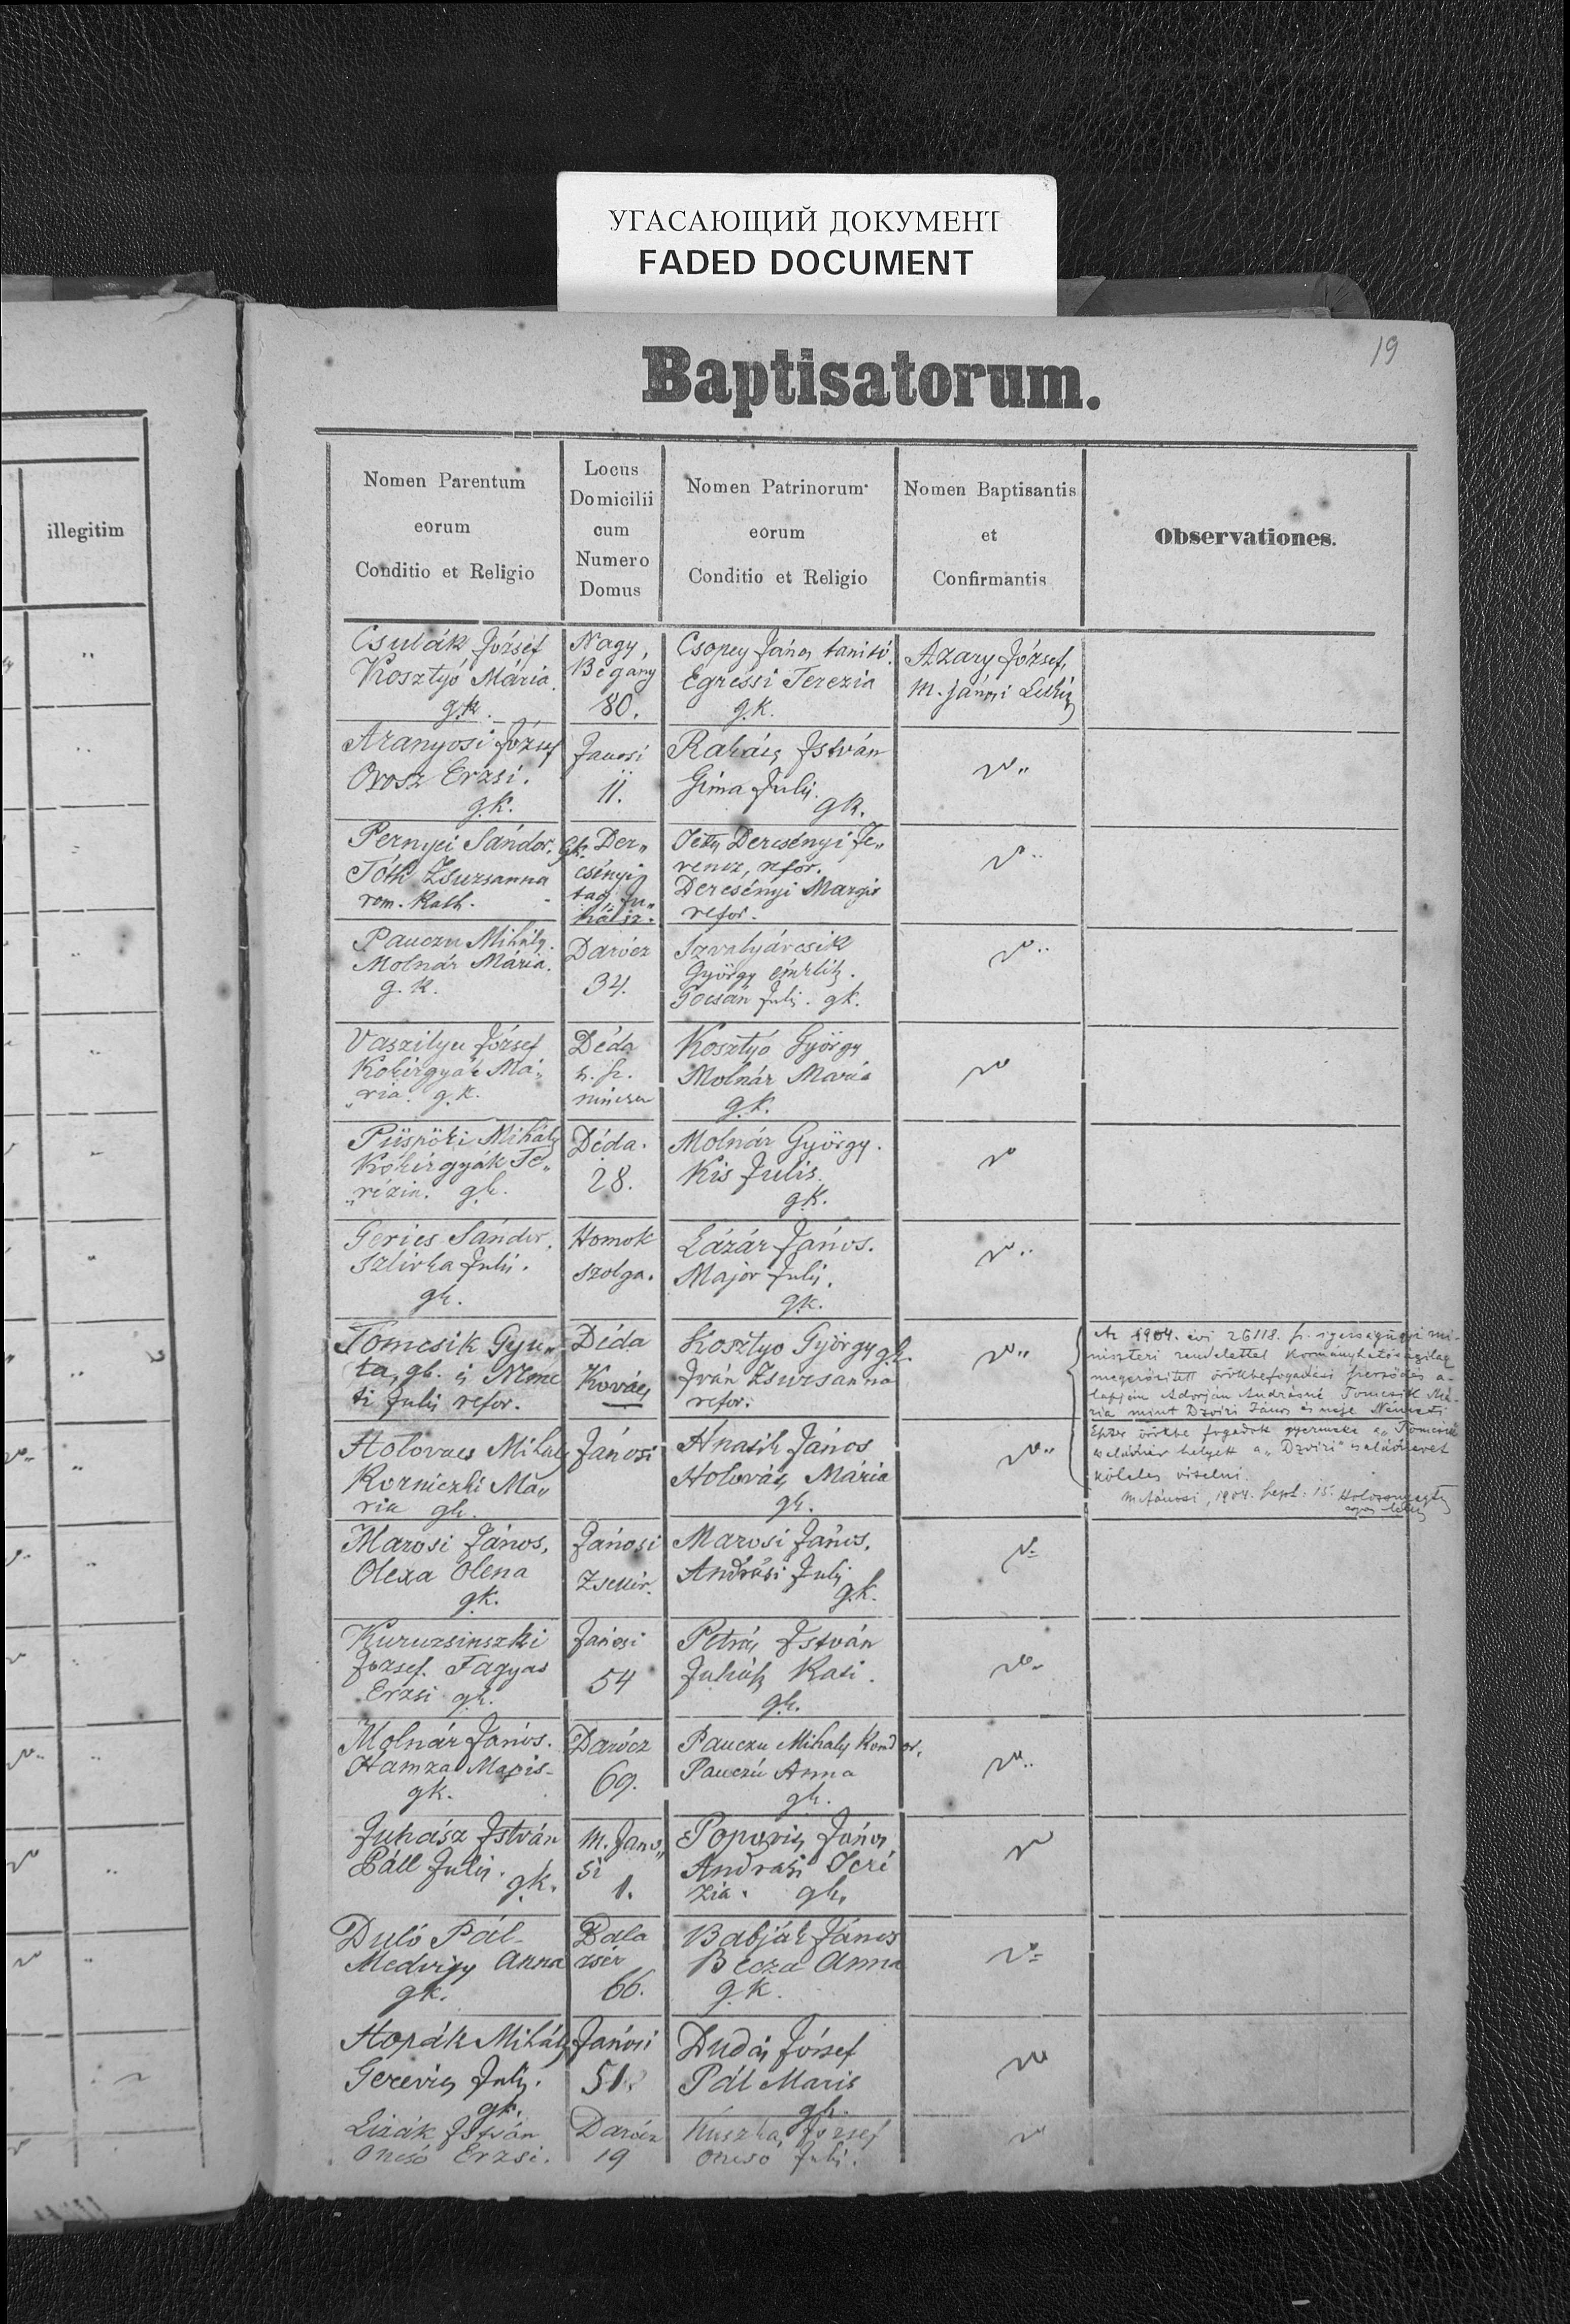 УГАСАЮЩИЙ ДОКУМЕНТ
FADED DOCUMENT
19
Baptisatorum.
illegitim
Nomen Parentum
eorum
Conditio et Religio
Locus
Domicilii
cum
Numero
Domus
Nomen Patrinorum
eorum
Conditio et Religio
Nomen Baptisantis
et
Confirmantis
Observationes.
Csulák József
Kosztyó Mária
g.k.
Nagy,
Bégany
80.
Csopey János tanitó.
Egressi Terezia
g.k.
Azary József,
M. Jánosi
Aranyosi József
Orosz Erzsi.
g.k.
Janosi
11.
István
Gima Juli.
gk.
Pernyei Sándor. gk.
Tóth Zsuzsanna
rom. Kath.
Der„
csényi
tag Ju„
hász.
Dercsényi Fe„
rencz, refor.
Dercsényi Margit
refor.
Pauczu Mihály.
Molnár Mária.
g. k.
Darócz
34.
György
Juli. gk.
Vaszilyu József
Má„
„ria. g.k.
Déda
nincsen
Kosztyó György
Molnár Maria
g.k.
Püspöki Mihály
Te„
„rézia. gk.
Déda.
28.
Molnár György.
Kis Julis.
gk.
Gerics Sándor,
Juli.
gk.
Homok
szolga.
Lázár János.
Major Juli.
gk.
Tomcsik Gyu„
la, gk. és Néme
ti Juli refor.
Déda
Kovács
Kosztyo György gk.
Iván Zsuzsanna
refor.
Az 1904. évi 26118. sz. igazságügyi mi-
niszteri rendelettel kormányhatóságilag
megerősített örökbefogadási szerződés a-
lapján Adorján Andrásné Tomcsik Má-
ria mint Dzviri János és neje Németi
Eszter örökbe fogadott gyermeke a „Tomcsik”
családnév helyett a „Dzviri” családnevet
köteles viselni.
M. Jánosi, 1904. Sept. 15.
Holovacs Mihaly
Korniczki Má„
ria gk.
Jánosi
Hnatik János
Holovács Mária
gk.
Marosi János,
Olexa Olena
gk.
Jánosi
Zsellér.
Marosi János,
Andrási Juli
gk.
Kuruzsinszki
József. Fagyas
Erzsi gk.
Jánosi
54
Petrás István
Juhász Kati.
gk.
Molnár János.
Hamza Maris.
gk.
Darócz
69.
Pauczu Mihaly
Pauczú Anna
gk.
Juhász István
Páll Juli.
gk.
M. Jano„
si
1.
Popovics János
Andrasi Teré
zia. gk.
Duló Pál
Medvigy Anna
gk.
Bala
zsér
66.
Babják János
Becza Anna
g.k.
Hopák Mihály
Gerevics Juli.
gk.
Jánosi
51.
Dudás József
Pál Maris
gk.
Lizák István
Oncsó Erzsi.
Darócz
19
József
Oncsó Juli.